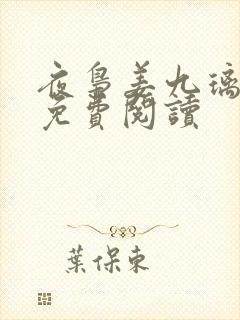 夜梟姜九璃
免費閱讀
葉保東